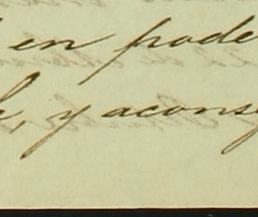 en pode
, y acons